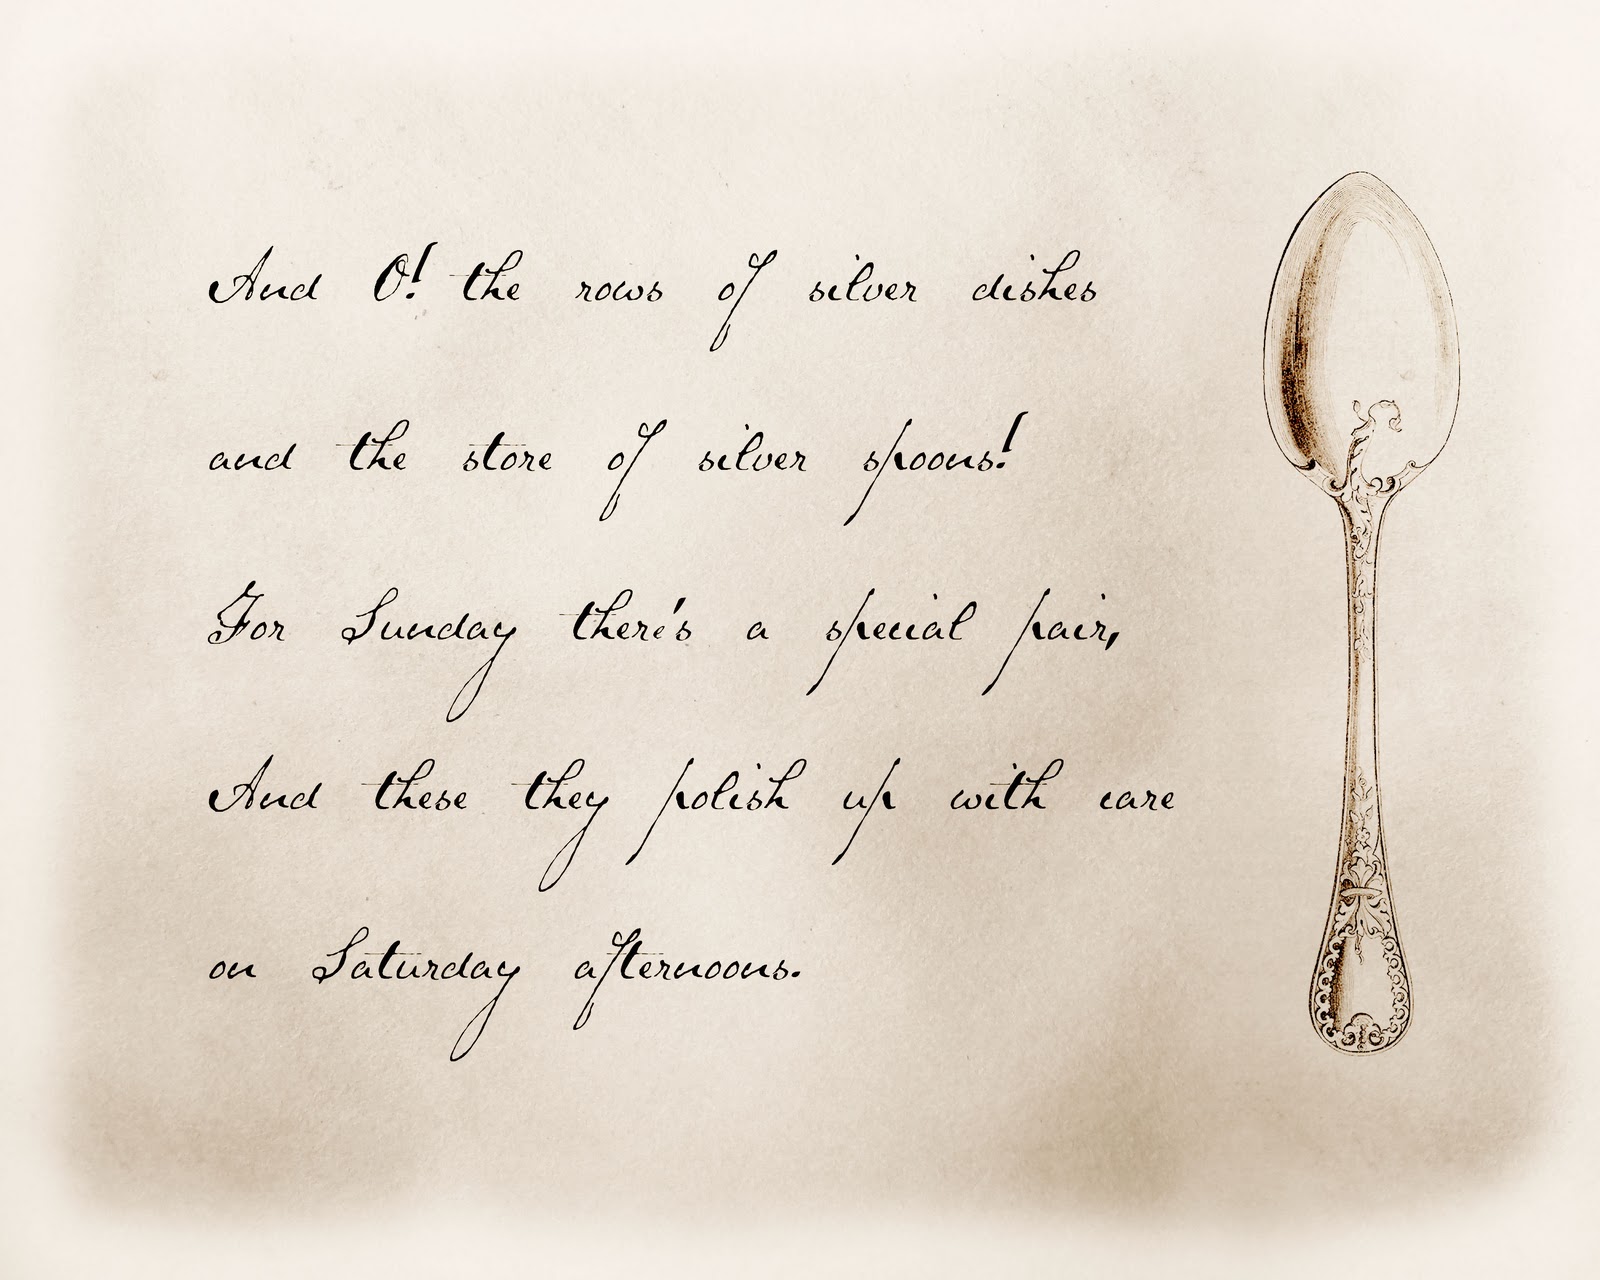 And O! the rows of silver dishes
and the store of silver spoons!
For Sunday there's a special pair,
And these they polish up with care
on Saturday afternoons.